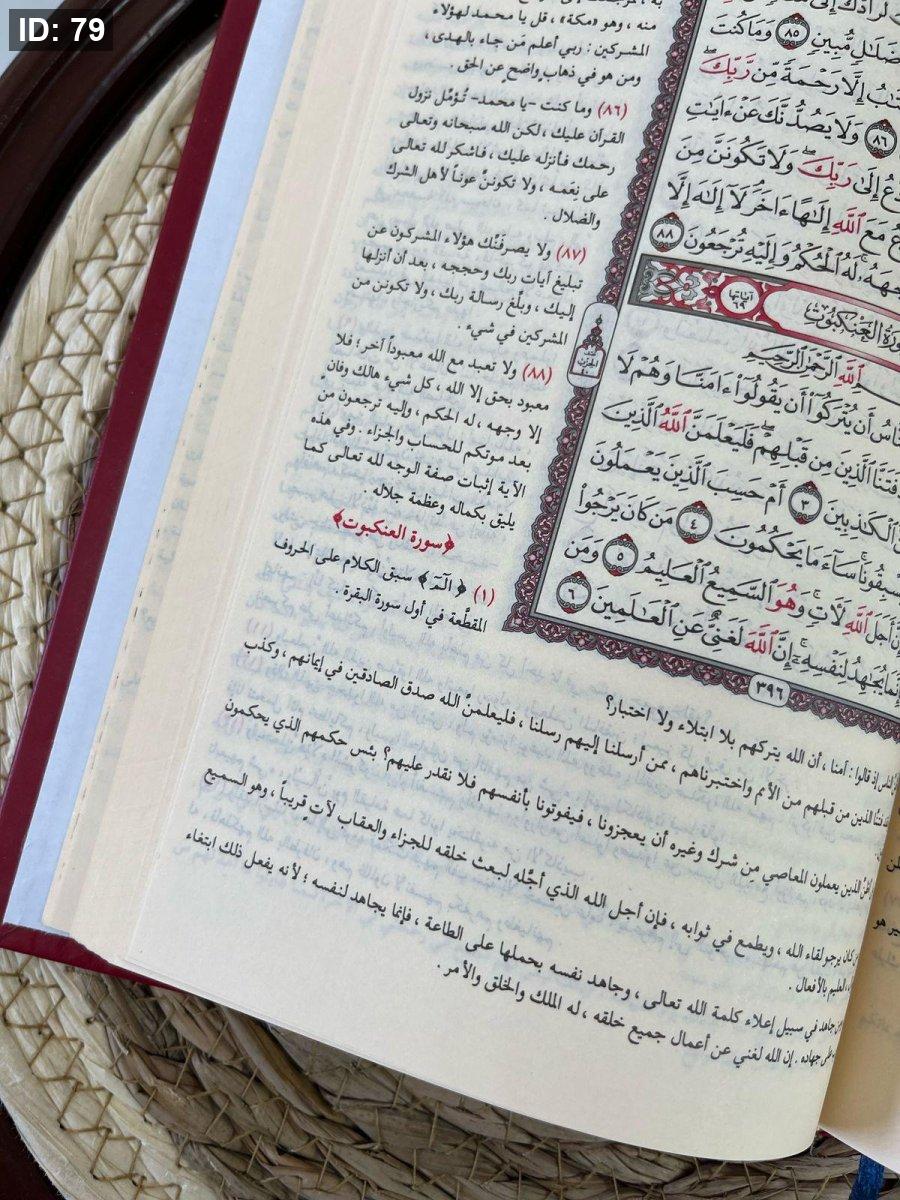 ID: 79
لرادك إلى
ضَلَٰلٍ مُّبِينٍ ٨٥ وَمَا كُنتَ
إِلَّا رَحْمَةً مِّن رَّبِّكَ
٨٦ وَلَا يَصُدُّنَّكَ عَنْ ءَايَٰتِ
إِلَىٰ رَبِّكَ وَلَا تَكُونَنَّ مِنَ
مَعَ ٱللَّهِ إِلَٰهًا ءَاخَرَ لَآ إِلَٰهَ إِلَّا
لَهُ ٱلْحُكْمُ وَإِلَيْهِ تُرْجَعُونَ ٨٨
العنكبوت
آياتها ٦٩
ٱللَّهِ ٱلرَّحْمَٰنِ ٱلرَّحِيمِ
أَن يُتْرَكُوٓا۟ أَن يَقُولُوٓا۟ ءَامَنَّا وَهُمْ لَا
ٱلَّذِينَ مِن قَبْلِهِمْ فَلَيَعْلَمَنَّ ٱللَّهُ ٱلَّذِينَ
ٱلْكَٰذِبِينَ ٣ أَمْ حَسِبَ ٱلَّذِينَ يَعْمَلُونَ
سَآءَ مَا يَحْكُمُونَ ٤ مَن كَانَ يَرْجُوا۟
أَجَلَ ٱللَّهِ لَءَاتٍ وَهُوَ ٱلسَّمِيعُ ٱلْعَلِيمُ ٥ وَمَن
يُجَٰهِدُ لِنَفْسِهِۦٓ إِنَّ ٱللَّهَ لَغَنِىٌّ عَنِ ٱلْعَٰلَمِينَ ٦
٣٩٦
منه ، وهو «مكة» ، قل يا محمد لهؤلاء
المشركين : ربي أعلم مَن جاء بالهدى ،
ومن هو في ذهاب واضح عن الحق .
(٨٦) وما كنت -يا محمد- تُؤمِّل نزول
القرآن عليك ، لكن الله سبحانه وتعالى
رحمك فأنزله عليك ، فاشكر لله تعالى
على نِعَمه ، ولا تكوننَّ عوناً لأهل الشرك
والضلال .
(٨٧) ولا يصرفَنَّك هؤلاء المشركون عن
تبليغ آيات ربك وحججه ، بعد أن أنزلها
إليك ، وبلِّغ رسالة ربك ، ولا تكونن من
المشركين في شيء .
(٨٨) ولا تعبد مع الله معبوداً آخر ؛ فلا
معبود بحق إلا الله ، كل شيء هالك وفانٍ
إلا وجهه ، له الحكم ، وإليه ترجعون من
بعد موتكم للحساب والجزاء . وفي هذه
الآية إثبات صفة الوجه لله تعالى كما
يليق بكماله وعظمة جلاله .
﴿سورة العنكبوت﴾
(١) ﴿الٓمٓ﴾ سبق الكلام على الحروف
المقطَّعة في أول سورة البقرة .
إذ قالوا : آمنا ، أن الله يتركهم بلا ابتلاء ولا اختبار؟
فتنَّا الذين من قبلهم من الأمم واختبرناهم ، ممن أرسلنا إليهم رسلنا ، فليعلمنَّ الله صدق الصادقين في إيمانهم ، وكذب
الذين يعملون المعاصي مِن شرك وغيره أن يعجزونا ، فيفوتونا بأنفسهم فلا نقدر عليهم؟ بئس حكمهم الذي يحكمون
كان يرجو لقاء الله ، ويطمع في ثوابه ، فإن أجل الله الذي أجَّله لبعث خلقه للجزاء والعقاب لآتٍ قريباً ، وهو السميع
العليم بالأفعال .
جاهد في سبيل إعلاء كلمة الله تعالى ، وجاهد نفسه بحملها على الطاعة ، فإنما يجاهد لنفسه ؛ لأنه يفعل ذلك ابتغاء
على جهاده . إن الله لغني عن أعمال جميع خلقه ، له الملك والخلق والأمر .